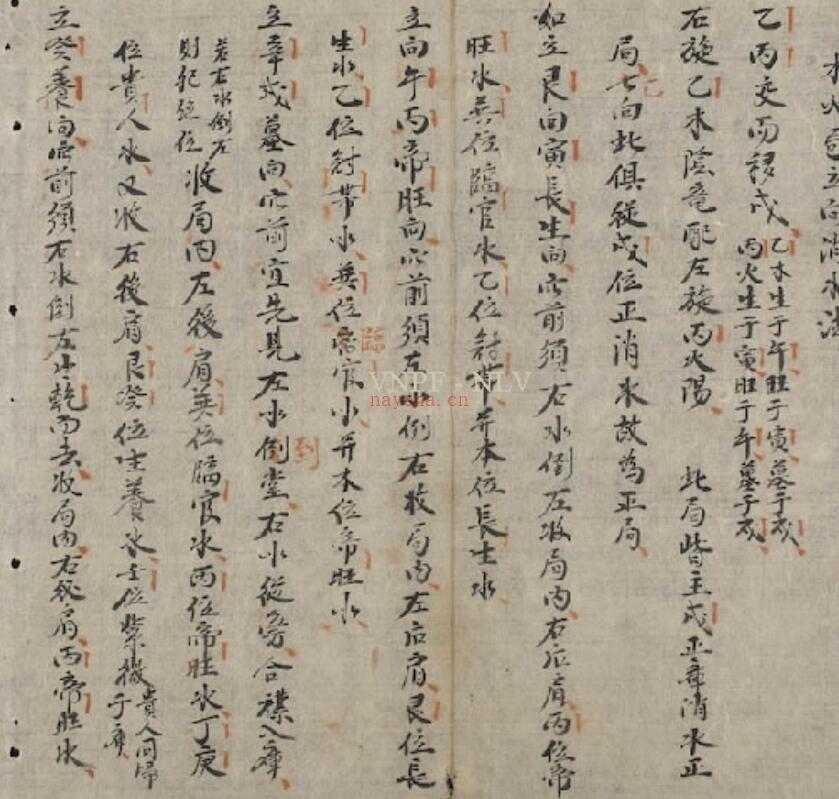 水火局立向消水法
乙丙交而移戌 乙木生于午旺于寅墓于戌
丙火生于寅旺于午墓于戌
右旋乙木陰竜配左旋丙火陽 此局皆主戌正庫消水正
局七向此俱從戌位正消水故為正局
如立艮向寅長生向穴前須右水倒左收局内右后肩丙位帝
旺水巽位臨官水乙位冠帶并本位長生水
立向午丙帝旺向穴前須左水倒右收局内左后肩艮位長
生水乙位冠帶水巽位臨官水并本位帝旺水
立辛戌墓向穴前宜先見左水倒堂右水從旁合襟入庫
若右水倒左
則犯 位 收局内左後肩巽位臨官水丙位帝旺水丁庚
位貴人水又收右後肩艮癸位生養水壬位 貴人同歸
于庫
立癸 養向穴前須右水倒左出乾而去收局内右後肩丙帝旺水
VNPF - NLV
naysha.cn
到